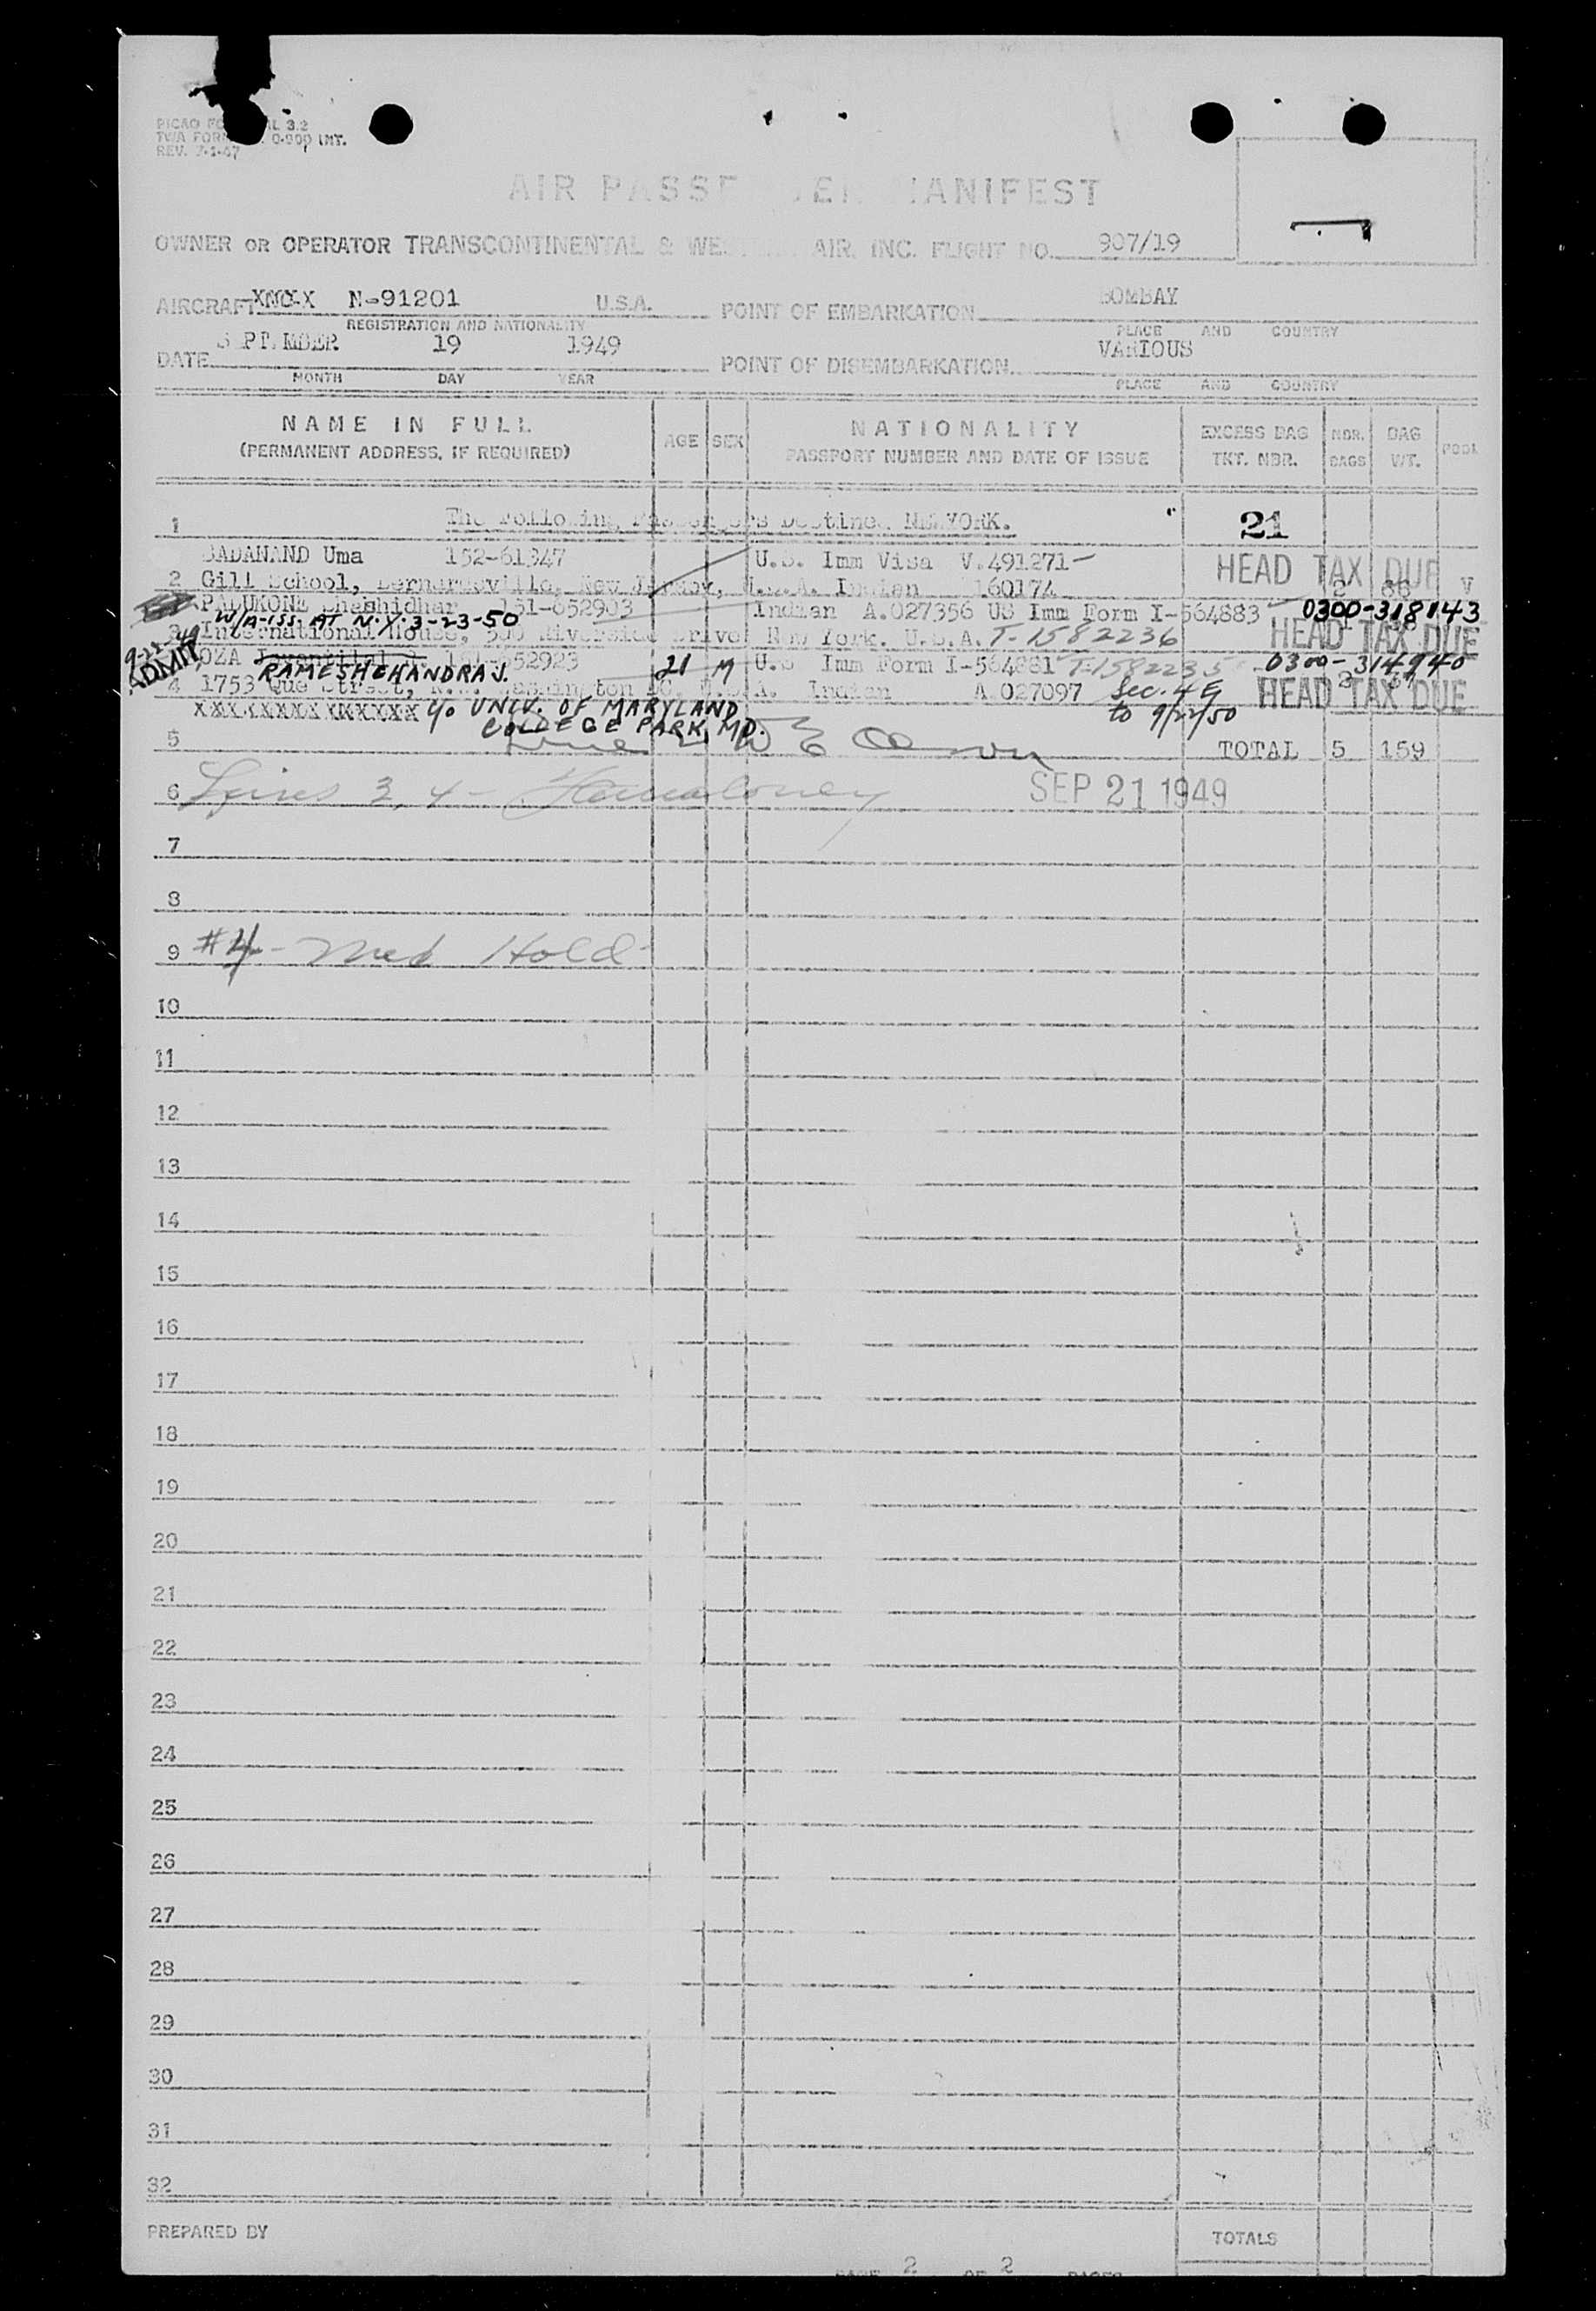 PICAO FO AL 3.2
TWA FORM 0-900 INT.
REV. 7-1-47
AIR PASSENGER MANIFEST
OWNER OR OPERATOR TRANSCONTINENTAL & WESTERN AIR, INC. FLIGHT NO. 907/19
AIRCRAFT N-91201 U.S.A. POINT OF EMBARKATION BOMBAY
REGISTRATION AND NATIONALITY PLACE AND COUNTRY
DATE SEPTEMBER 19 1949 POINT OF DISEMBARKATION VARIOUS
MONTH DAY YEAR PLACE AND COUNTRY
NAME IN FULL AGE SEX NATIONALITY EXCESS BAG NBR. BAG POOL
(PERMANENT ADDRESS, IF REQUIRED) PASSPORT NUMBER AND DATE OF ISSUE TKT. NBR. BAGS WT.
1 The Following Passengers Destined NEW YORK. 21
SADANAND Uma 152-61347 U.S. Imm Visa V.491271 HEAD TAX DUE
2 Gill School, Bernardsville, New Jersey, U.S.A. Indian 160174 2 86 V
PADUKONE Shashidhar 151-652903 Indian A.027356 US Imm Form I-564883 0300-318143
W/A-ISS. AT N.Y. 3-23-50
3 International House, 500 Riverside Drive New York. U.S.A. T-1582236 HEAD TAX DUE
9-22-49 ADMIT
OZA 652923 21 M U.S Imm Form I-564881 T-1582235 0300-314940
RAMESHCHANDRA J.
4 1753 Que Street, N.W. Washington DC, U.S.A. Indian A.027097 Sec. 4 E HEAD TAX DUE
XXXXXXXXXXXXXXXX c/o UNIV. OF MARYLAND to 9/22/50
COLLEGE PARK, MD.
5 TOTAL 5 159
6 Lines 3, 4 - SEP 21 1949
7
8
9 #4 - Med Hold
10
11
12
13
14
15
16
17
18
19
20
21
22
23
24
25
26
27
28
29
30
31
32
PREPARED BY TOTALS
PAGE 2 OF 2 PAGES